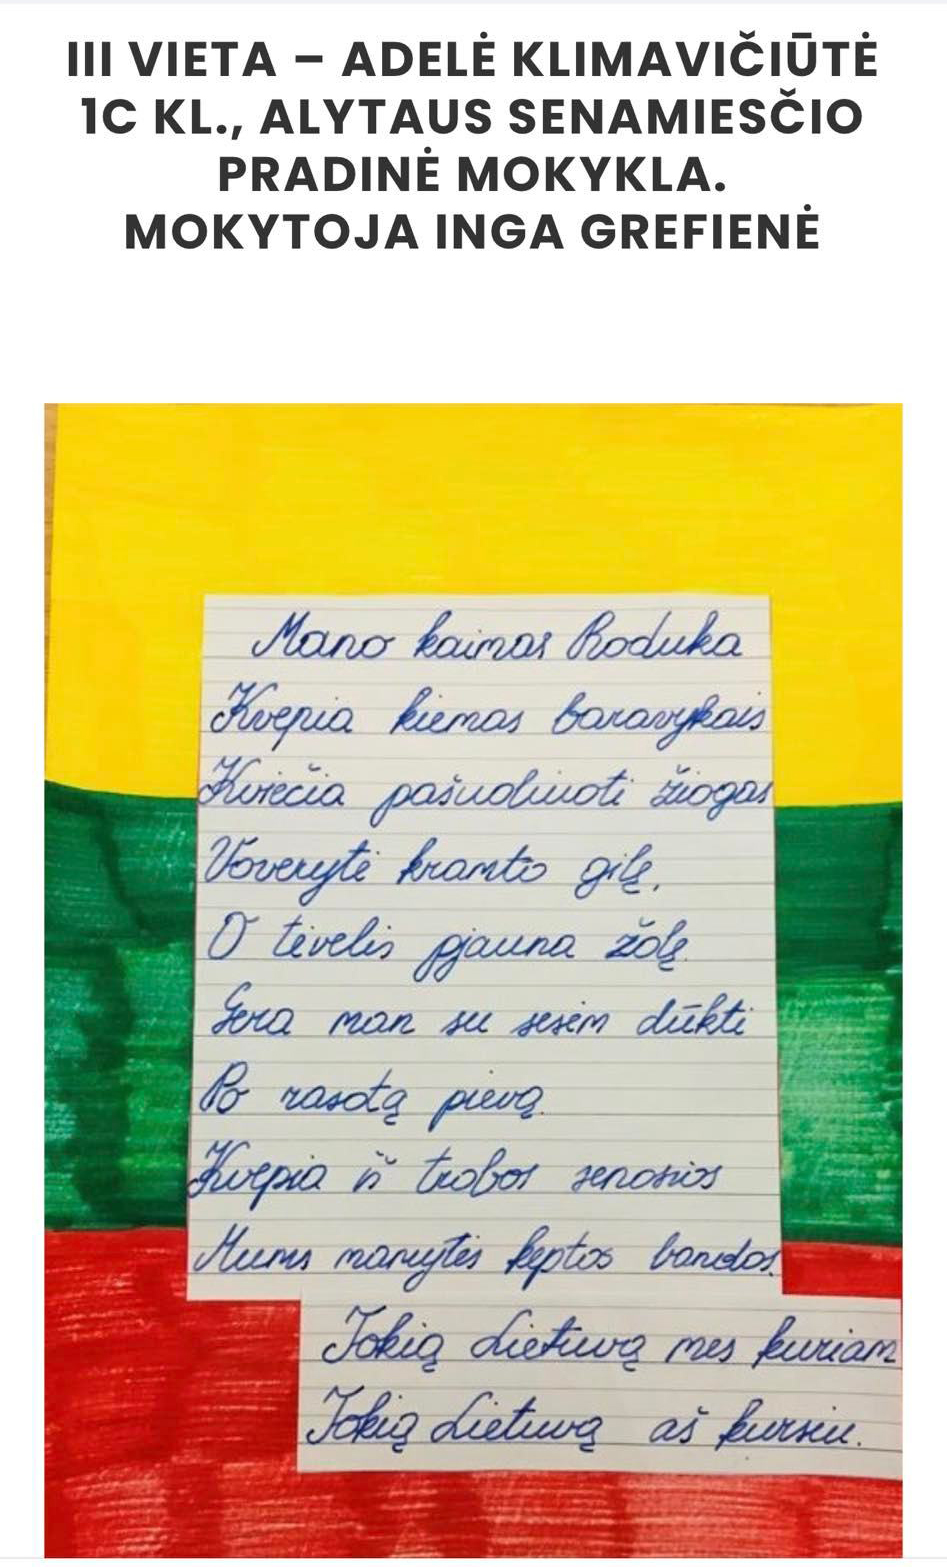 III VIETA – ADELĖ KLIMAVIČIŪTĖ
1C KL., ALYTAUS SENAMIESČIO
PRADINĖ MOKYKLA.
MOKYTOJA INGA GREFIENĖ
Mano kaimas Roduka
Kvepia kiemas baravykais
Kviečia pašuoliuoti žiogas
Voverytė kramto gilę,
O tėvelis pjauna žolę
Gera man su sesėm dūkti
Po rasotą pievą
Kvepia iš trobos senosios
Mums mamytės keptos bandos.
Tokią Lietuvą mes kuriam
Tokią Lietuvą aš kursiu.